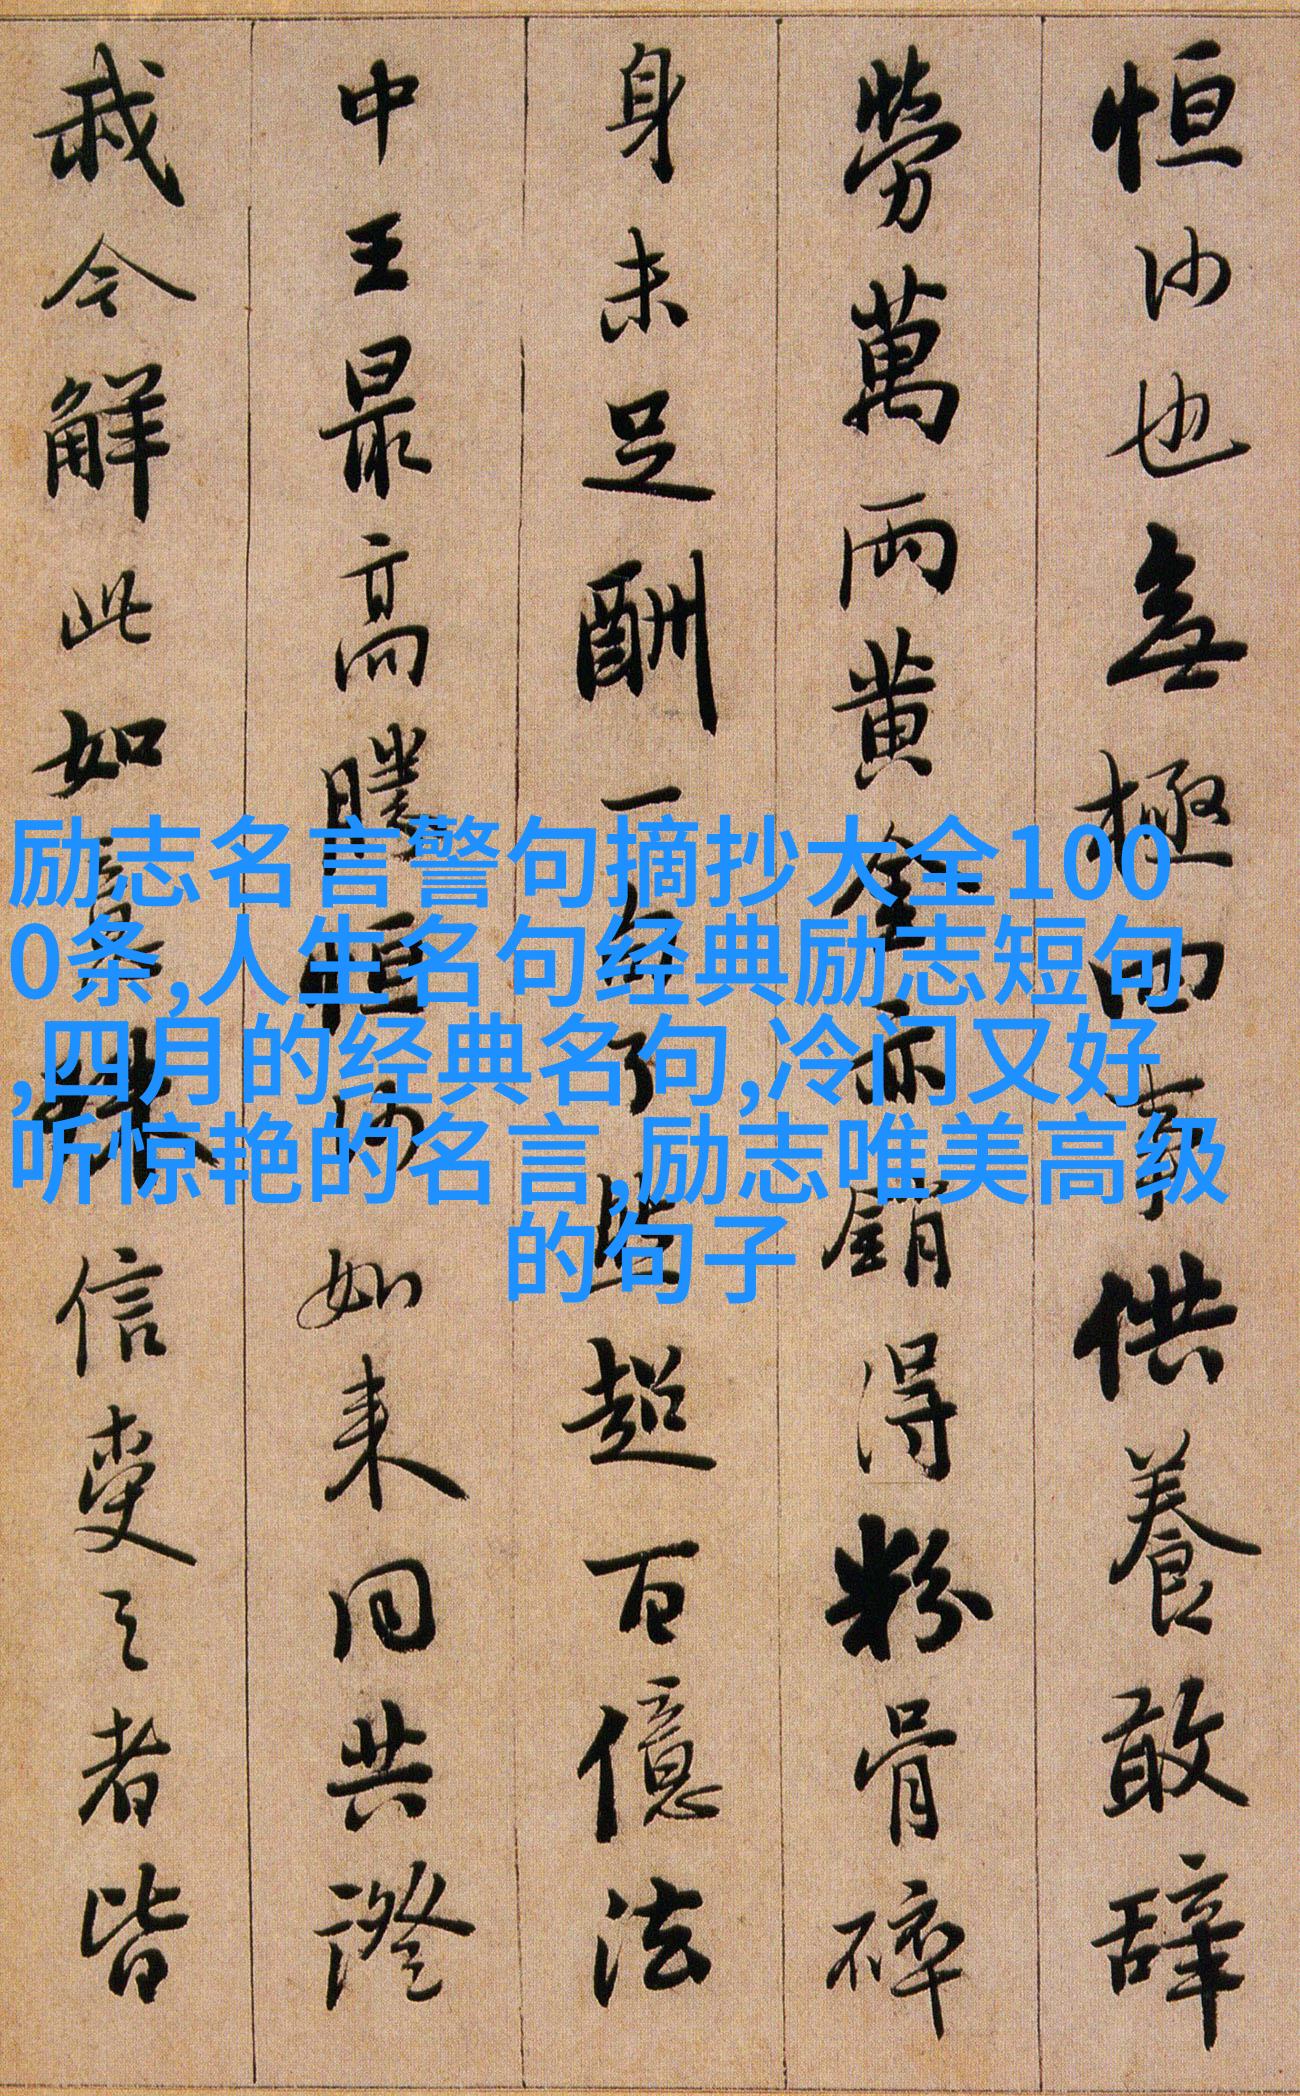 恒沙也無極四事供養敢辞
勞萬兩黃金亦銷得粉骨碎
身未足酬一句了然超百億法
中王最高勝恒沙如来同共證
我今解此如意珠信受之者皆
励志名言警句摘抄大全100
0条,人生名句经典励志短句
,四月的经典名句,冷门又好
听惊艳的名言,励志唯美高级
的句子